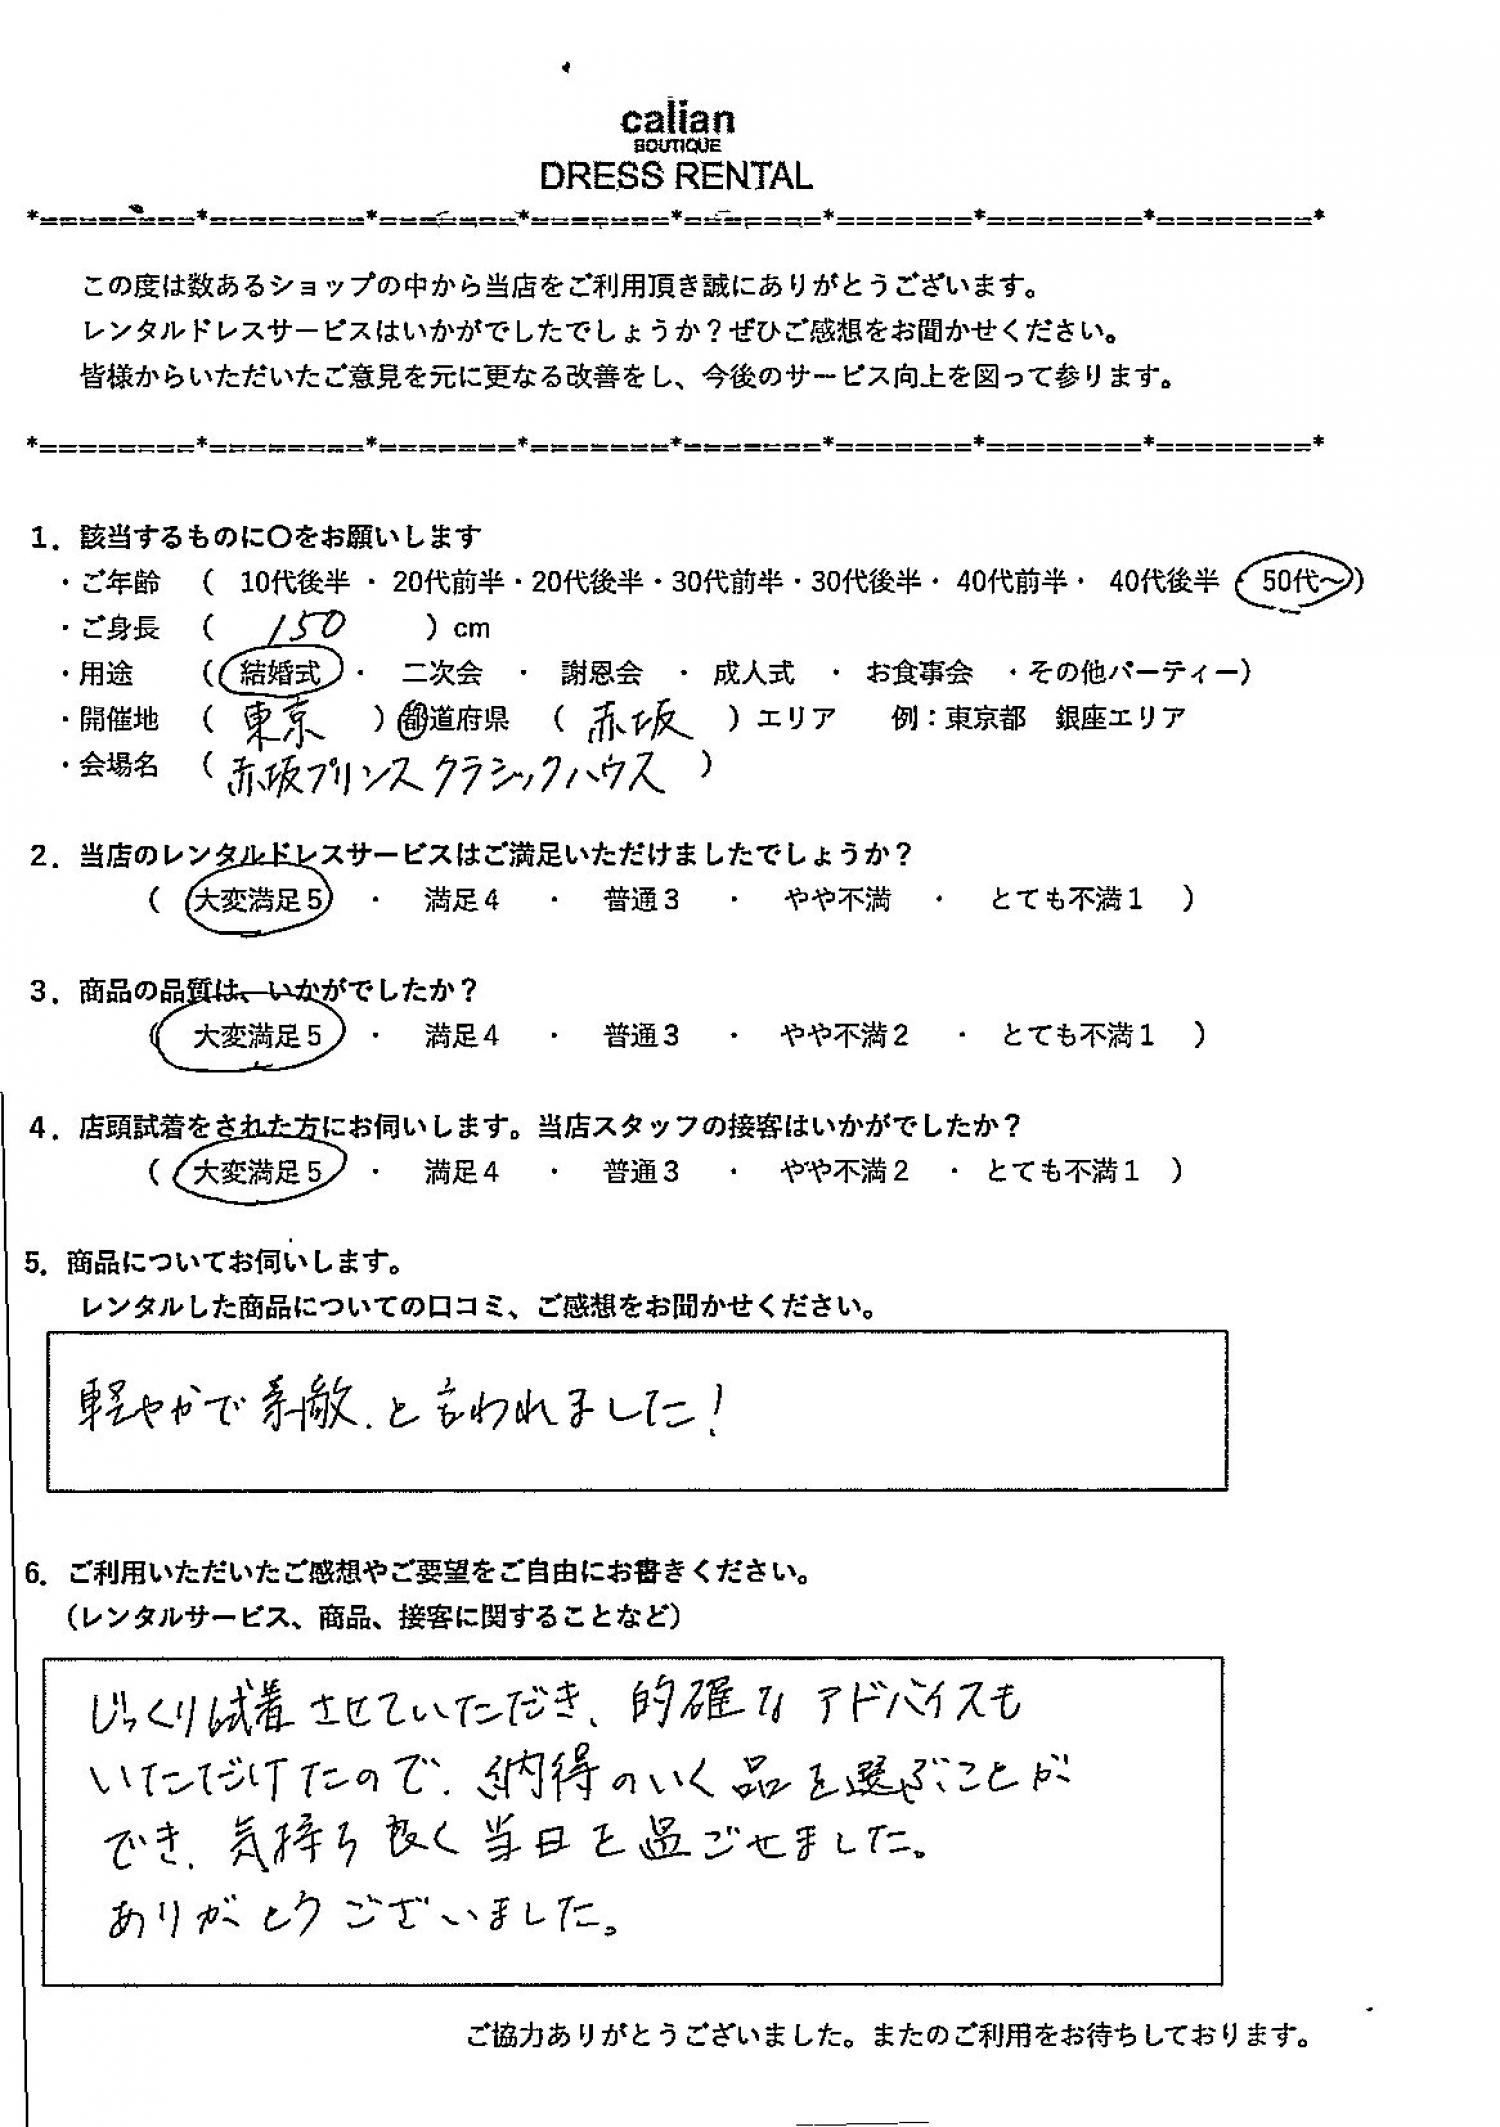 calian
BOUTIQUE
DRESS RENTAL
*========*========*=======*=======*=======*=======*========*========*
この度は数あるショップの中から当店をご利用頂き誠にありがとうございます。
レンタルドレスサービスはいかがでしたでしょうか？ぜひご感想をお聞かせください。
皆様からいただいたご意見を元に更なる改善をし、今後のサービス向上を図って参ります。
*========*========*=======*=======*=======*=======*========*========*
1．該当するものに〇をお願いします
・ご年齢 （ 10代後半 ・ 20代前半・20代後半・30代前半・30代後半・ 40代前半・ 40代後半 ・ 50代～）
・ご身長 （ 150 ）cm
・用途 （ 結婚式 ・ 二次会 ・ 謝恩会 ・ 成人式 ・ お食事会 ・その他パーティー）
・開催地 （ 東京 ）都道府県 （ 赤坂 ）エリア 例：東京都 銀座エリア
・会場名 （ 赤坂プリンスクラシックハウス ）
2．当店のレンタルドレスサービスはご満足いただけましたでしょうか？
（ 大変満足5 ・ 満足4 ・ 普通3 ・ やや不満 ・ とても不満1 ）
3．商品の品質は、いかがでしたか？
（ 大変満足5 ・ 満足4 ・ 普通3 ・ やや不満2 ・ とても不満1 ）
4．店頭試着をされた方にお伺いします。当店スタッフの接客はいかがでしたか？
（ 大変満足5 ・ 満足4 ・ 普通3 ・ やや不満2 ・ とても不満1 ）
5．商品についてお伺いします。
レンタルした商品についての口コミ、ご感想をお聞かせください。
軽やかで素敵、と言われました！
6．ご利用いただいたご感想やご要望をご自由にお書きください。
（レンタルサービス、商品、接客に関することなど）
じっくり試着させていただき、的確なアドバイスも
いただけたので、納得のいく品を選ぶことが
でき、気持ち良く当日を過ごせました。
ありがとうございました。
ご協力ありがとうございました。またのご利用をお待ちしております。